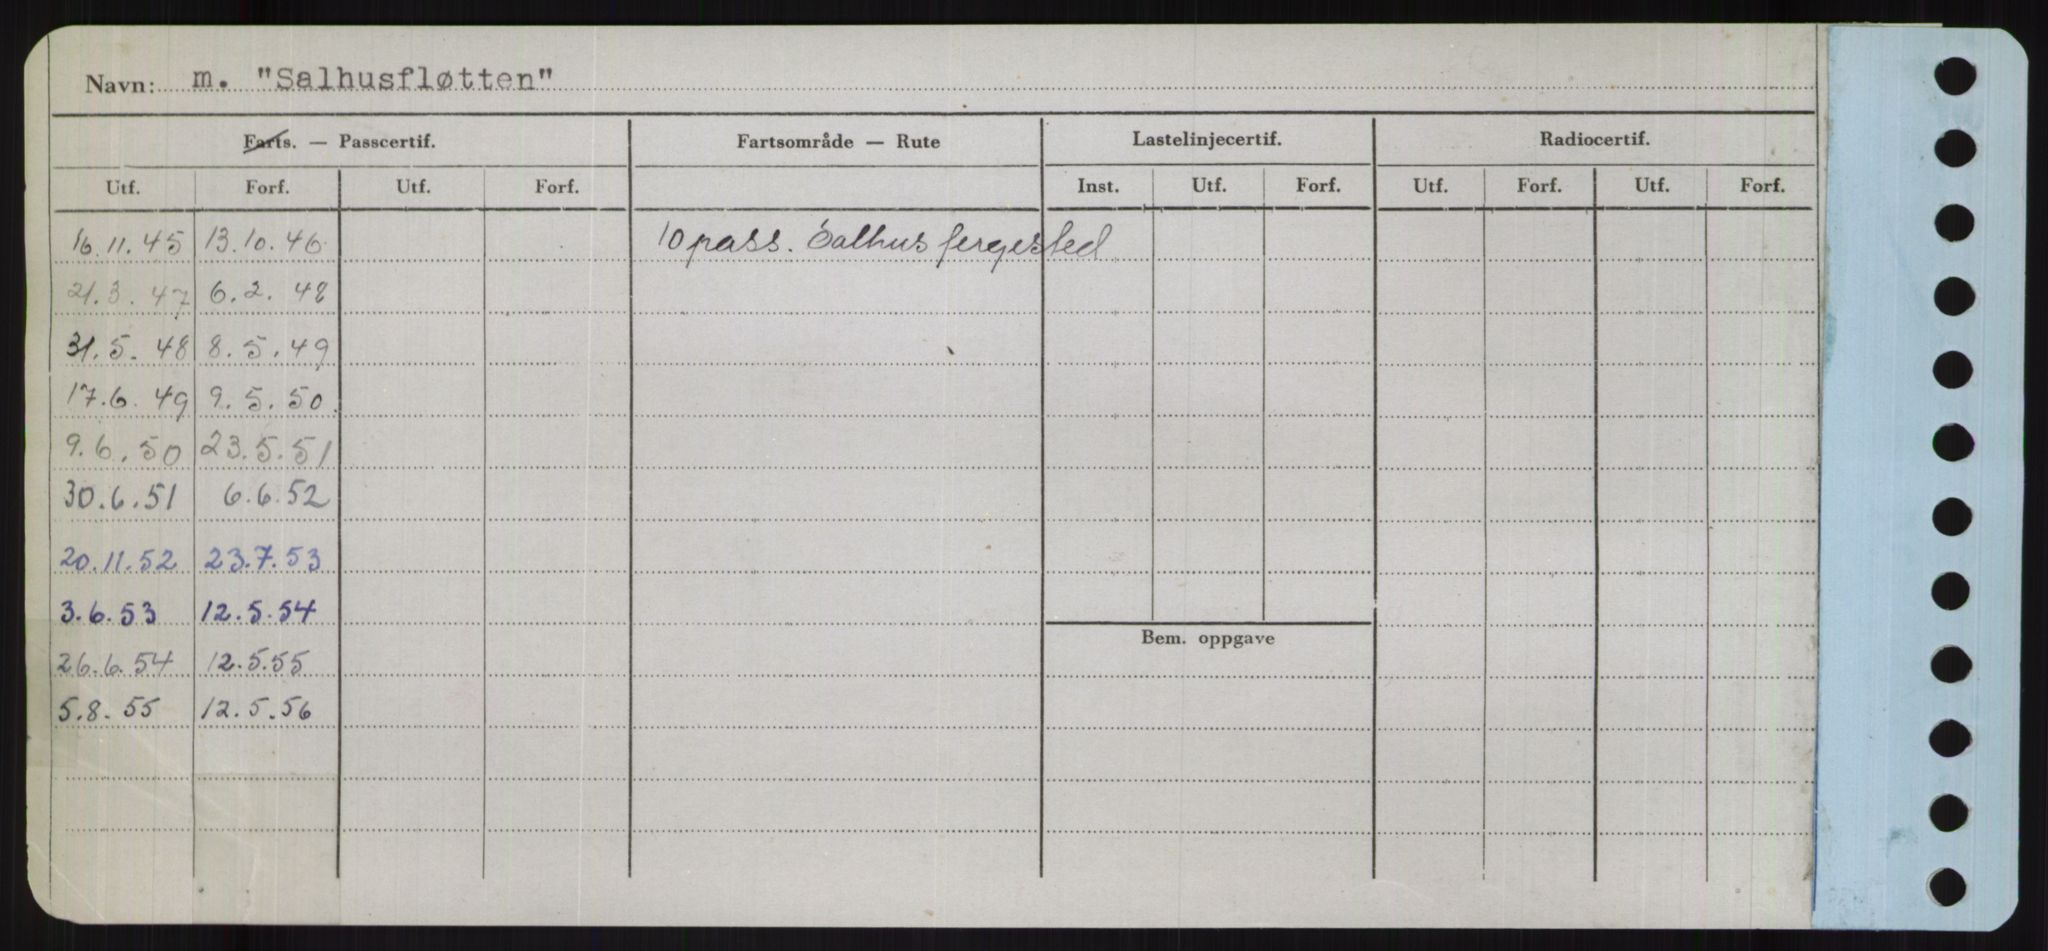 Navn: m. "Salhusfløtten"
Farts. — Passcertif. Fartsområde — Rute Lastelinjecertif. Radiocertif.
Utf. Forf. Utf. Forf. Inst. Utf. Forf. Utf. Forf. Utf. Forf.
16.11.45 13.10.46 10 pass. Salhus fergested
21.3.47 6.2.48
31.5.48 8.5.49
17.6.49 9.5.50.
9.6.50 23.5.51
30.6.51 6.6.52
20.11.52 23.7.53
3.6.53 12.5.54
Bem. oppgave
26.6.54 12.5.55
5.8.55 12.5.56